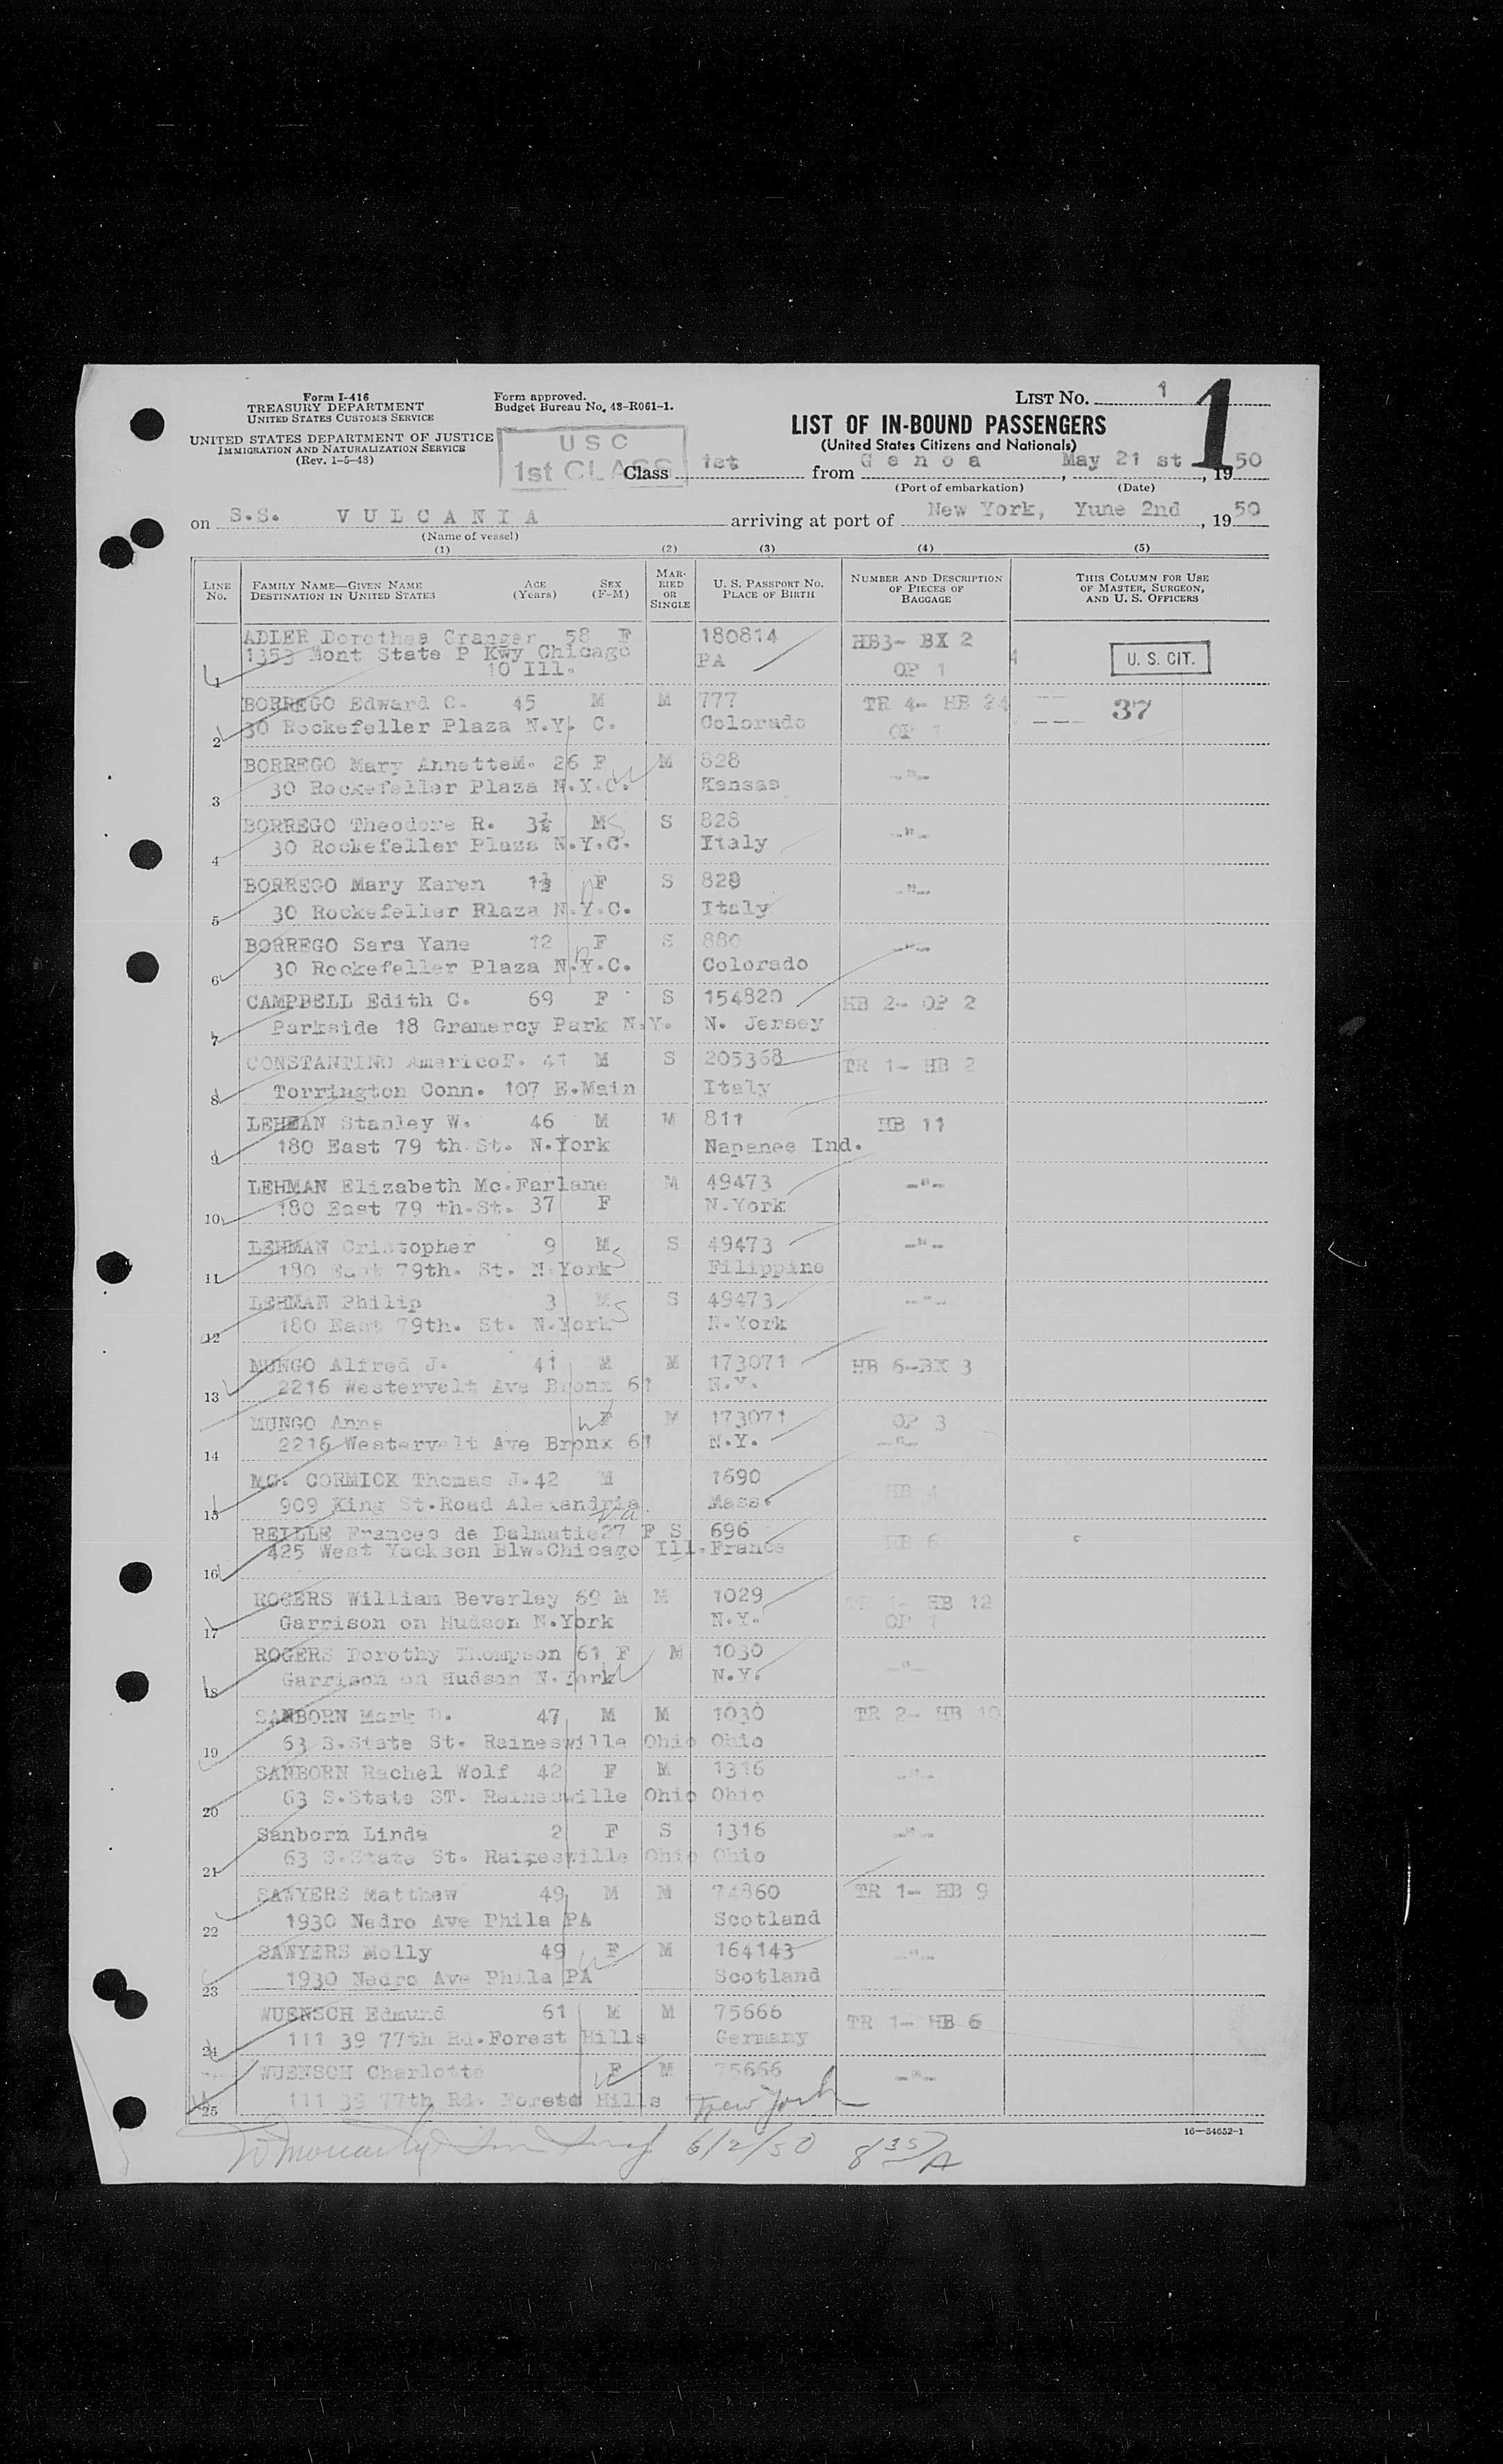 Form I-416
TREASURY DEPARTMENT
UNITED STATES CUSTOMS SERVICE
UNITED STATES DEPARTMENT OF JUSTICE
IMMIGRATION AND NATURALIZATION SERVICE
(Rev. 1-5-48)
Form approved.
Budget Bureau No. 48-R061-1.
LIST No. 1
1
LIST OF IN-BOUND PASSENGERS
(United States Citizens and Nationals)
U S C
1st CLASS
Class 1st from Genoa, May 21 st, 1950
(Port of embarkation) (Date)
on S.S. VULCANIA arriving at port of New York, Yune 2nd, 1950
(Name of vessel)
(1) (2) (3) (4) (5)
LINE No. FAMILY NAME—GIVEN NAME DESTINATION IN UNITED STATES AGE (Years) SEX (F-M) MARRIED OR SINGLE U. S. PASSPORT No. PLACE OF BIRTH NUMBER AND DESCRIPTION OF PIECES OF BAGGAGE THIS COLUMN FOR USE OF MASTER, SURGEON, AND U. S. OFFICERS
ADLER Dorothea Cranger 58 F 180814 HB3- BX 2
1353 Mont State P Kwy Chicago PA U. S. CIT.
1 10 Ill. OP 1
BORREGO Edward C. 45 M M 777 TR 4- HB 24 37
2 30 Rockefeller Plaza N.Y. C. Colorado OP
BORREGO Mary AnnetteM. 26 F M 828 -"-
3 30 Rockefeller Plaza N.Y.C. Kansas
BORREGO Theodore R. 3½ M S 828 -"-
4 30 Rockefeller Plaza N.Y.C. Italy
BORREGO Mary Karen 1½ F S 828 -"-
5 30 Rockefeller Rlaza N.Y.C. Italy
BORREGO Sara Yane 12 F S 880 -"-
6 30 Rockefeller Plaza N.Y.C. Colorado
CAMPBELL Edith C. 69 F S 154820 HB 2- OP 2
7 Parkside 18 Gramercy Park N.Y. N. Jersey
CONSTANTINO AmericoF. 41 M S 205368 TR 1- HB 2
8 Torrington Conn. 107 E.Main Italy
LEHMAN Stanley W. 46 M M 811 HB 11
9 180 East 79 th.St. N.York Napanee Ind.
LEHMAN Elizabeth Mc.Farlane M 49473 -"-
10 180 East 79 th.St. 37 F N.York
LEHMAN Cristopher 9 M S 49473 -"-
11 180 East 79th. St. N.York Filippine
LEHMAN Philip 3 M S 49473 -"-
12 180 East 79th. St. N.York N.York
MUNGO Alfred J. 41 M M 173071 HB 6-BX 3
13 2216 Westervelt Ave Bronx 61 N.Y.
MUNGO Anna F M 173071 OP 3
14 2216 Westervelt Ave Bronx 61 N.Y. -"-
MC. CORMICK Thomas J.42 M 1690 HB 4
15 909 King St.Road Alexandria Va Mass.
REILLE Frances de Dalmatie27 F S 696 HB 6
16 425 West Yackson Blw.Chicago Ill.France
ROGERS William Beverley 69 M M 1029 HB 12
17 Garrison on Hudson N.York N.Y. OP 1
ROGERS Dorothy Thompson 61 F M 1030 -"-
18 Garrison on Hudson N.York N.Y.
SANBORN Mark D. 47 M M 1030 TR 2- HB 10
19 63 S.State St. Rainesville Ohio Ohio
SANBORN Rachel Wolf 42 F M 1316 -"-
20 63 S.State ST. Rainesville Ohio Ohio
Sanborn Linda 2 F S 1316 -"-
21 63 S.State St. Rainesville Ohio Ohio
SAWYERS Matthew 49 M M 74860 TR 1- HB 9
22 1930 Nedro Ave Phila PA Scotland
SAWYERS Molly 49 F M 164143 -"-
23 1930 Nedro Ave Phila PA Scotland
WUENSCH Edmund 61 M M 75666 TR 1- HB 6
24 111 39 77th Rd.Forest Hills Germany
WUENSCH Charlotte F M 75666 -"-
25 111 39 77th Rd. Forest Hills New York
16—54652-1
6/2/50 8 35/A